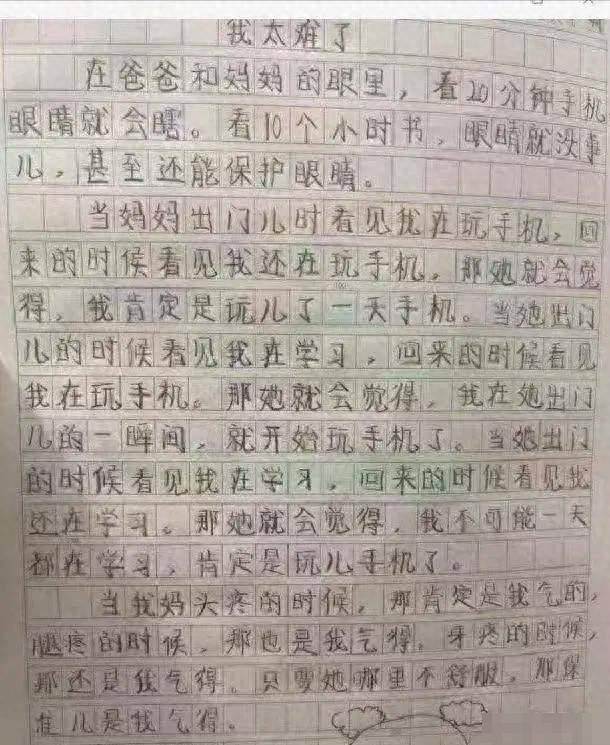 我太难了
在爸爸和妈妈的眼里，看20分钟手机
眼睛就会瞎。看10个小时书，眼睛就没事
儿，甚至还能保护眼睛。
当妈妈出门儿时看见我在玩手机，回
来的时候看见我还在玩手机，那她就会觉
得，我肯定是玩儿了一天手机。当她出门
儿的时候看见我在学习，回来的时候看见
我在玩手机。那她就会觉得，我在她出门
儿的一瞬间，就开始玩手机了。当她出门
的时候看见我在学习，回来的时候看见我
还在学习。那她就会觉得，我不可能一天
都在学习，肯定是玩儿手机了。
当我妈头疼的时候，那肯定是我气的，
腿疼的时候，那也是我气得。牙疼的时候，
那还是我气得。只要她哪里不舒服，那保
准儿是我气得。